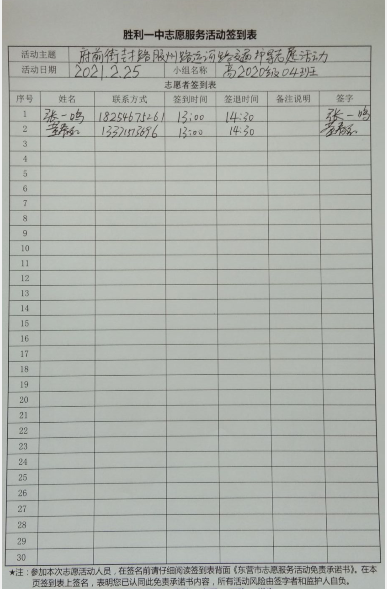 胜利一中志愿服务活动签到表
活动主题 府前街 路胶州路运河路交通护导志愿活动
活动日期 2021.2.25 小组名称 高2020级04班
志愿者签到表
序号 姓名 联系方式 签到时间 签退时间 备注说明 签字
1 张一鸣 18254675261 13:00 14:30 张一鸣
2 13:00 14:30
3
4
5
6
7
8
9
10
11
12
13
14
15
16
17
18
19
20
21
22
23
24
25
26
27
28
29
30
★注：参加本次志愿活动人员，在签名前请仔细阅读签到表背面《东营市志愿服务活动免责承诺书》。在本
页签到表上签名，表明您已认同此免责承诺书内容，所有活动风险由签字者和监护人自负。